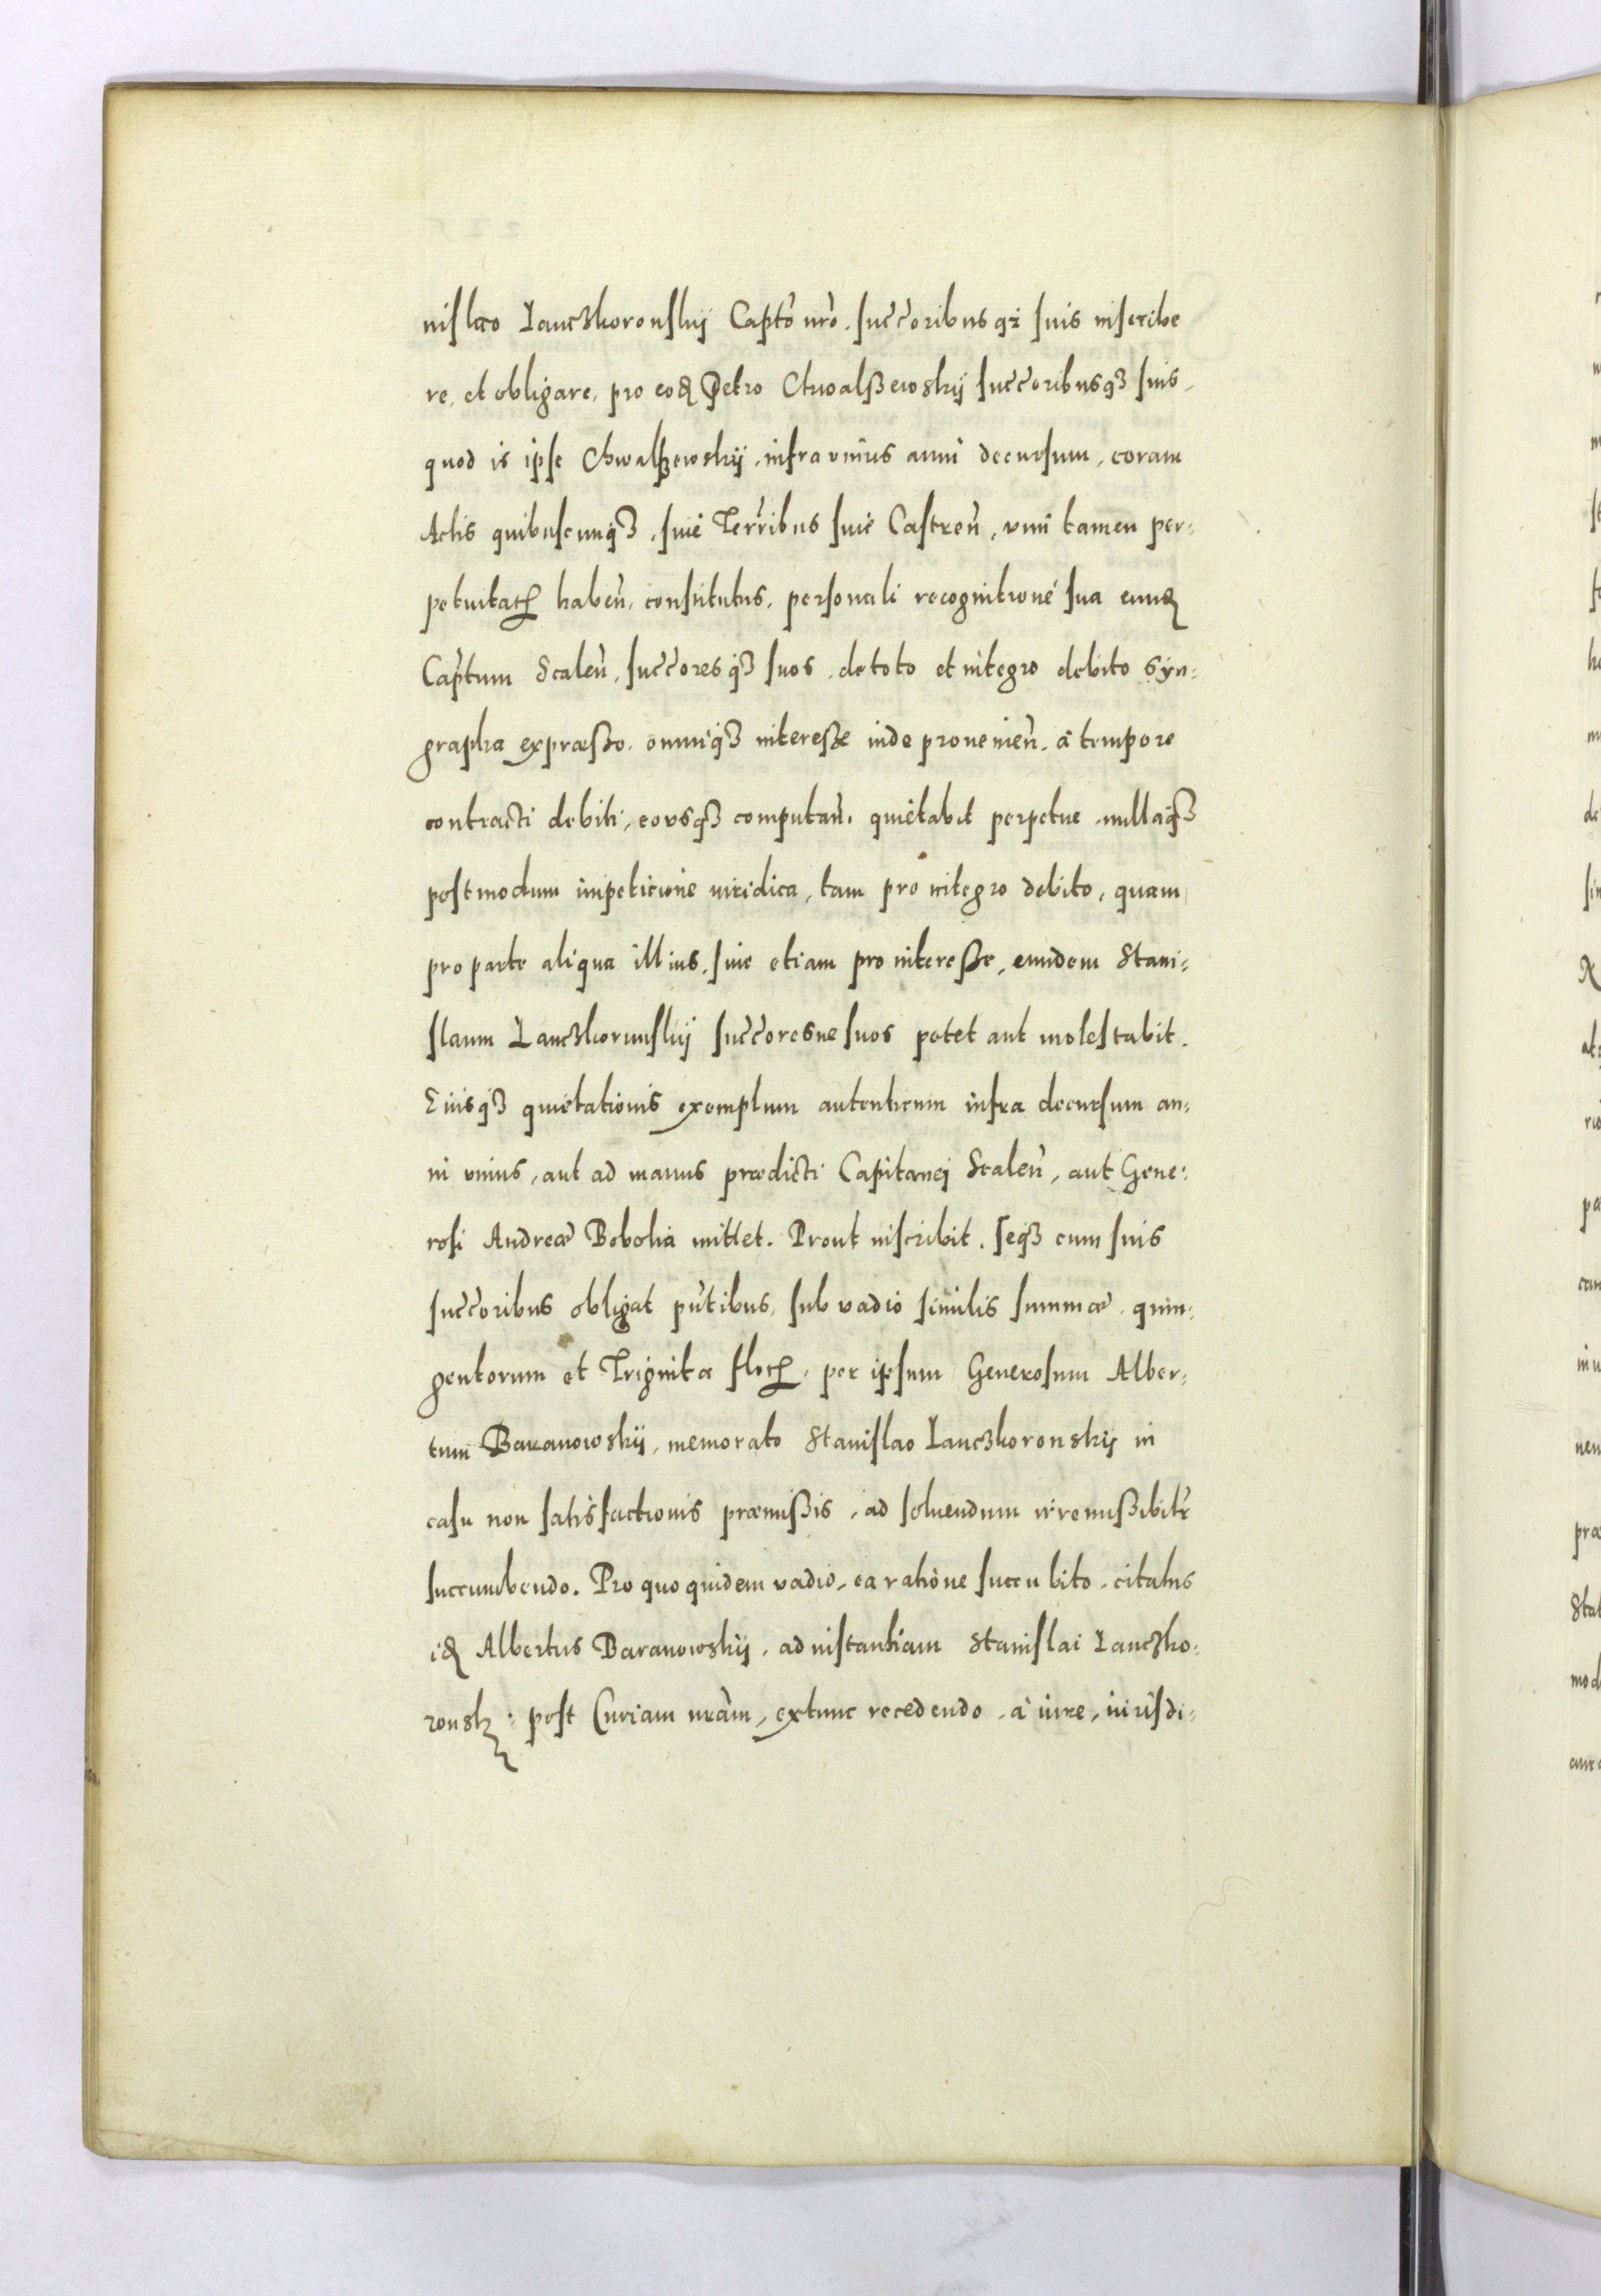 nislao Lanczkoronskij Capto nro. succoribusqz suis inscribe
re, et obligare, pro eodem Petro Chwalßewskij succoribusqz suis,
quod is ipse Chwalßewskij, infra unius anni decursum, coram
Actis quibuscunqz, sive Terribus sive Castren, vim tamen per=
petuitatum haben, constitutus, personali recognitione sua eundem
Captum Scalen, succoresqz suos, de toto et integro debito syn=
grapha expraesso. omniqz interesse inde provenien. à tempore
contracti debiti, eousqz computan. quietabit perpetue, nullaqz
postmodum impeticione iuridica, tam pro integro debito, quam
pro parte aliqua illius, sive etiam pro interesse, eundem Stani=
slaum Lanczkorunskij succoresve suos petet aut molestabit.
Eiusqz quietationis exemplum autenticum infra decursum an=
ni unius, aut ad manus praedicti Capitanej Scalen, aut Gene=
rosi Andreae Bobolia mittet. Prout inscribit. seqz cum suis
succoribus obligat putibus, sub vadio similis summae, quin=
gentorum et Triginta florum, per ipsum Generosum Alber=
tum Baranowskij, memorato Stanislao Lanczkoronskij in
casu non satisfactionis praemissis, ad solvendum irremissibiltr
succumbendo. Pro quo quidem vadio, ea ratione succubito, citatus
idem Albertus Baranowskij, ad instantiam Stanislai Lanczko=
ronsk: post Curiam nram, extunc recedendo, à iure, iurisdi=